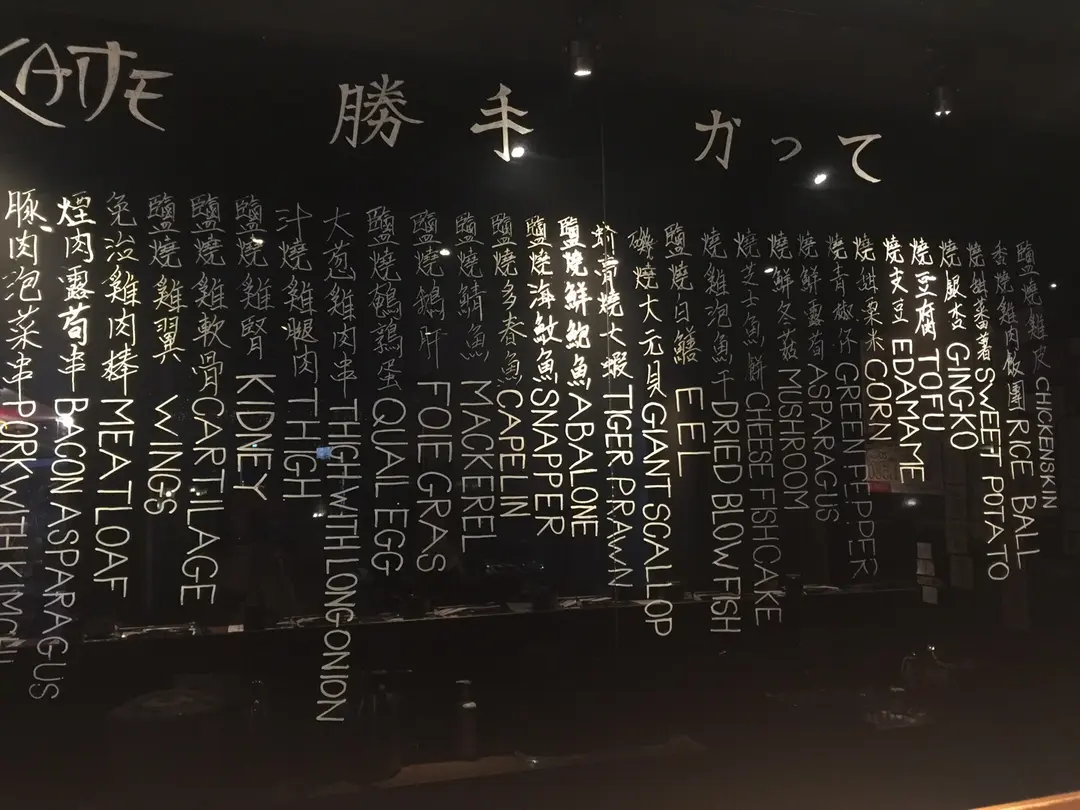 KATTE 勝手 カって
鹽燒雞皮 CHICKEN SKIN
香燒雞肉飯團 RICE BALL
燒甜蕃薯 SWEET POTATO
燒銀杏 GINGKO
燒豆腐 TOFU
燒支豆 EDAMAME
燒甜粟米 CORN
燒青椒仔 GREEN PEPPER
燒鮮露荀 ASPARAGUS
燒鮮冬菇 MUSHROOM
燒芝士魚餅 CHEESE FISHCAKE
燒雞泡魚干 DRIED BLOWFISH
鹽燒白鱔 EEL
磯燒大元貝 GIANT SCALLOP
蚧膏燒大蝦 TIGER PRAWN
鹽燒鮮鮑魚 ABALONE
鹽燒海鮫魚 SNAPPER
鹽燒多春魚 CAPELIN
鹽燒鯖魚 MACKEREL
鹽燒鵝肝 FOIE GRAS
鹽燒鵪鶉蛋 QUAIL EGG
大葱雞肉串 THIGH WITH LONG ONION
汁燒雞腿肉 THIGH
鹽燒雞腎 KIDNEY
鹽燒雞軟骨 CARTILAGE
鹽燒雞翼 WINGS
免治雞肉棒 MEAT LOAF
煙肉露荀串 BACON ASPARAGUS
豚肉泡菜串 PORK WITH KIMCHI